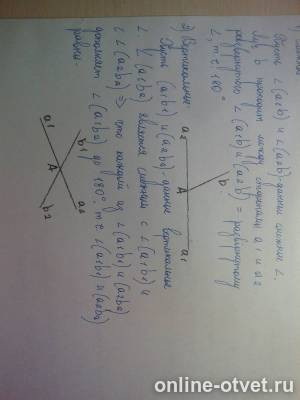 Пусть ∠(a1b) и ∠(a2b)-данные смежные ∠.
Луч b проходит между сторонами a1 и a2
развёрнутого. ∠(a1b) и ∠(a2b) = развёрнутому
∠, т.е 180°
a2
A
b
a1
2) Вертикальные:
Пусть (a1b1) и (a2b2)-данные вертикальные
∠. ∠(a1b2) является смежным с ∠(a1b1) и
с ∠(a2b2) => что каждый из ∠(a1b1) и (a2b2)
дополняет ∠(a1b2) до 180°. т.е ∠(a1b1) и (a2b2)
равны.
a1
b1
A
b2
a2
online-otvet.ru